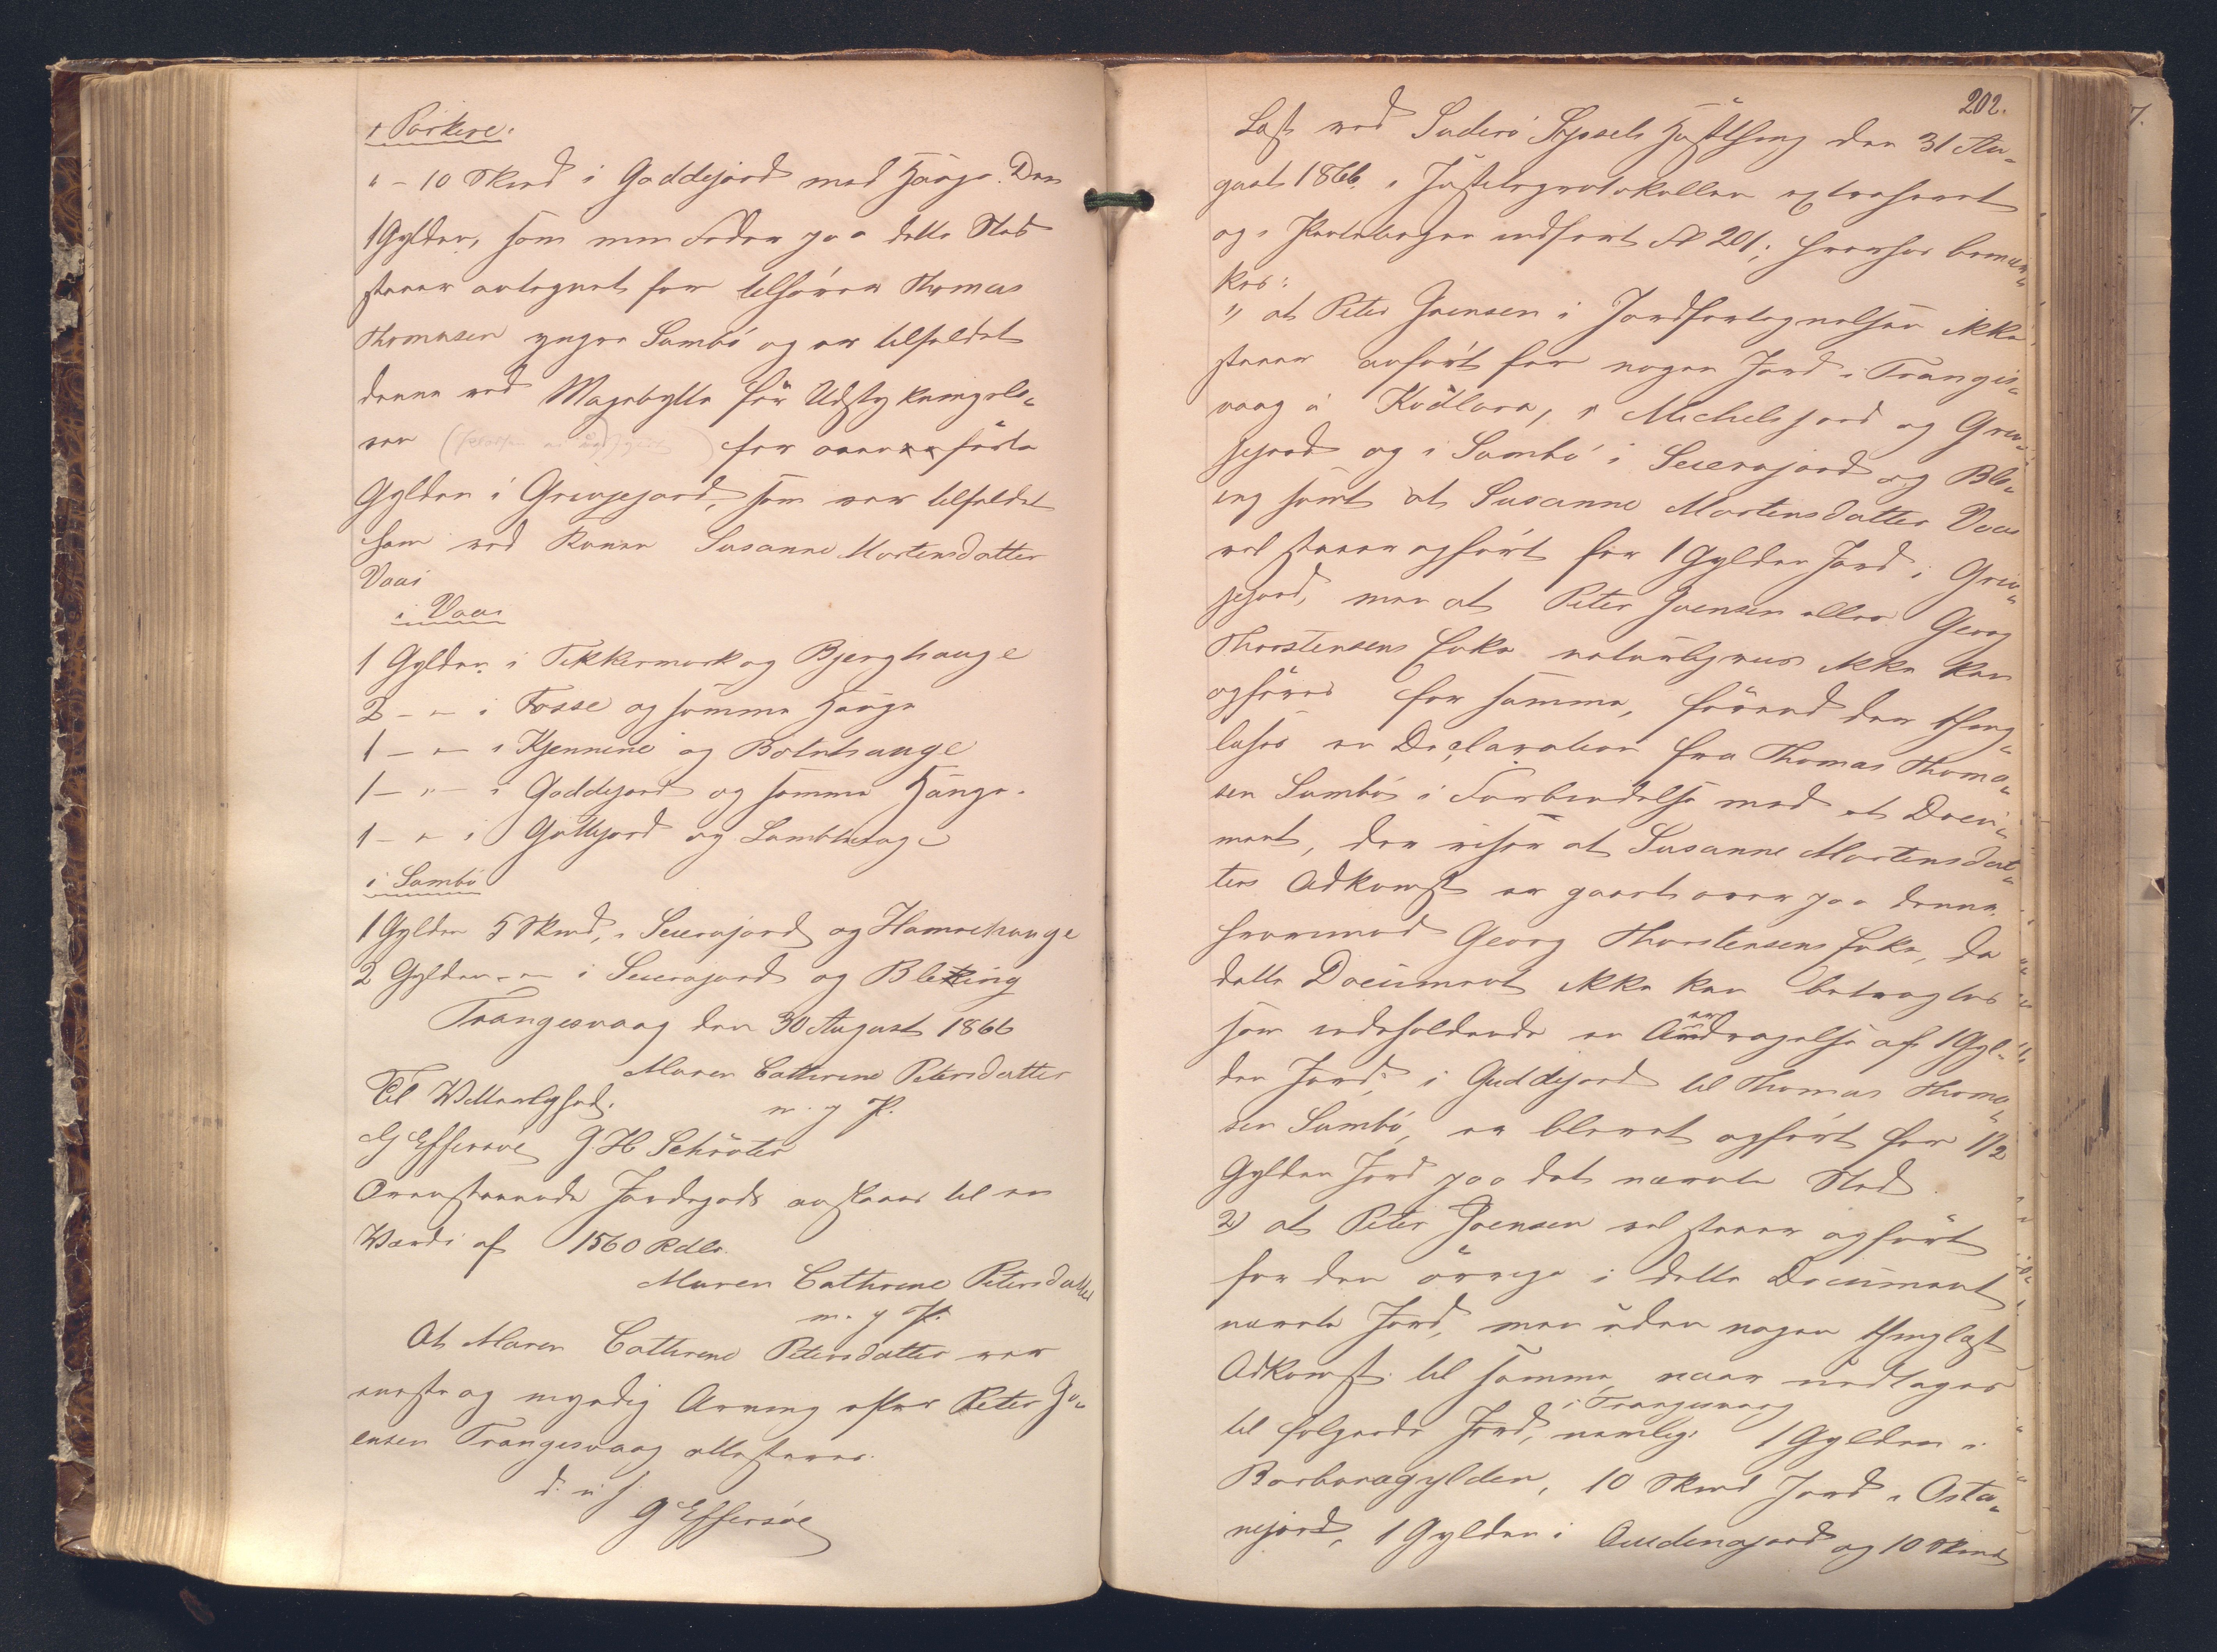 i Porkere:
" - 10 Skind i Gaddejord med Hauge. Den
1 Gylden, som min Fader paa dette Sted
staaer antegnet for tilhører Thomas
Thomasen yngre Sumbø og er tilfaldet
denne ved Magebytte før Udstykningslo-
ven for ovenanførte
Gylden i Grivjejord, som var tilfaldet
ham ved Konen Susanne Mortensdatter
Vaai
i Vaai
1 Gylden i Tikkermark og Bjerghauge
2 - " - i Fosse og samme Hauge
1 - " - i Kjennine og Botnhauge
1 - " - i Gaddejord og samme Hauge.
1 - " - i Gottjord og Lambhauge
i Sumbø
1 Gylden 5 Skind, i Seierajord og Hamrehauge
2 Gylden - " - i Seierajord og Bleking
Trangisvaag den 30 August 1866
Maren Cathrine Petersdatter
Til Vitterlighed. m. f. P.
G Effersøe J. H Schrøter
Ovenstaaende Jordegods ansættes til en
Værdi af 1560 Rdlr.
Maren Cathrine Petersdatter
m. f. P.
At Maren Cathrine Petersdatter var
eneste og myndig Arving efter Peter Jo-
ensen Trangisvaag attesteres.
d. u. s.
G Effersøe
202.
Læst ved Suderø Syssels Høstthing den 31 Au-
gust 1866, i Justitsprotokollen extraheret
og i Pantebogen indført Fol 201; hvorhos bemær-
kes:
1) at Peter Joensen i Jordfortegnelsen ikke
staaer anført for nogen Jord i Trangis-
vaag i Kvøllara, i Michelsjord og Griv-
jejord og i Sumbø i Seierajord og Ble-
ing samt at Susanne Mortensdatter Vaai
vel staaer opført for 1 Gylden Jord i Griv-
jejord, men at Peter Joensen eller Georg
Thorstensens Enke naturligviis ikke kan
opføres for samme, førend der thing-
læses en Declaration fra Thomas Thoma-
sen Sumbø i Forbindelse med et Docu-
ment, der viser at Susanne Mortensdat-
ters Adkomst er gaaet over paa denne
hvorimod Georg Thorstensens Enke, da
dette Document ikke kan betragtes
som indeholdende en Overdragelse af 1 Gyl-
den Jord i Gaddejord til Thomas Thoma-
sen Sumbø, er blevet opført for 1/2
Gylden Jord paa det nævnte Sted
2) at Peter Joensen vel staaer opført
for den øvrige i dette Document
nævnte Jord, men uden nogen thinglæst
Adkomst til samme, naar undtages
i Trangisvaag
til følgende Jord, nemlig: 1 Gylden i
Barbaragylden, 10 Skind Jord i Osta-
nejord, 1 Gylden i Audenajord og 10 Skind